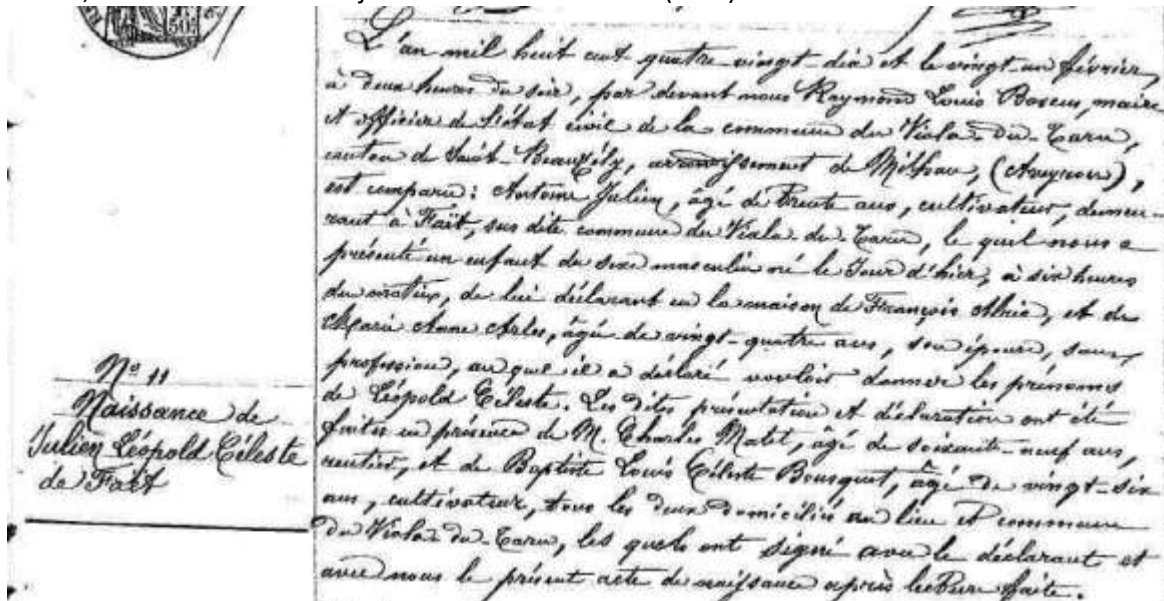 N° 11
Naissance de
Julien Léopold Céleste
de Faït
L'an mil huit cent quatre-vingt-dix et le vingt-un février,
à deux heures du soir, par devant nous Raymond Louis Boscus, maire
et officier de l'état civil de la commune du Viala-du-Tarn,
canton de Saint-Beauzély, arrondissement de Milhau, (Aveyron),
est comparu: Antoine Julien, âgé de trente ans, cultivateur, demeu-
rant à Faït, sus dite commune du Viala-du-Tarn, le quel nous a
présenté un enfant du sexe masculin né le jour d'hier, à six heures
du matin, de lui déclarant en la maison de François, et de
Marie Anne Arles, âgée de vingt-quatre ans, son épouse, sans
profession, au quel il a déclaré vouloir donner les prénoms
de Léopold Céleste. Les dites présentation et déclaration ont été
faites en présence de M. Charles Matet, âgé de soixante-neuf ans,
rentier, et de Baptiste Louis Céleste Bousquet, âgé de vingt-six
ans, cultivateur, tous les deux domiciliés au lieu et commune
du Viala-du-Tarn, les quels ont signé avec le déclarant et
avec nous le présent acte de naissance après lecture faite.